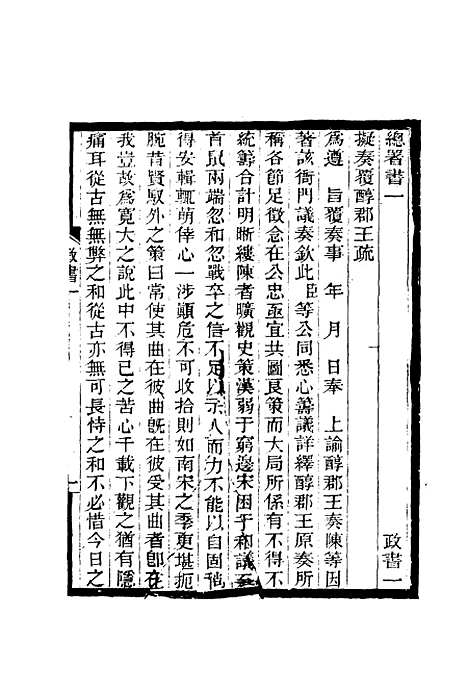 總署書一 政書一
擬奏覆醇郡王疏
爲遵 旨覆奏事 年 月 日奉 上諭醇郡王奏陳等因
著該衙門議奏欽此臣等公同悉心籌議詳繹醇郡王原奏所
稱各節足徵念在公忠亟宜共圖良策而大局所係有不得不
統籌合計明晰縷陳者曠觀史策漢弱于窮邊宋困于和議至
首鼠兩端忽和忽戰卒之信不足以示人而力不能以自固偷
得安輯輒萌倖心一涉顛危不可收拾則如南宋之季更堪扼
腕昔賢馭外之策曰常使其曲在彼曲旣在彼受其曲者卽在
我豈故爲寛大之說此中不得已之苦心千載下觀之猶有隱
痛耳從古無無弊之和從古亦無可長恃之和不必惜今日之
政書一
一